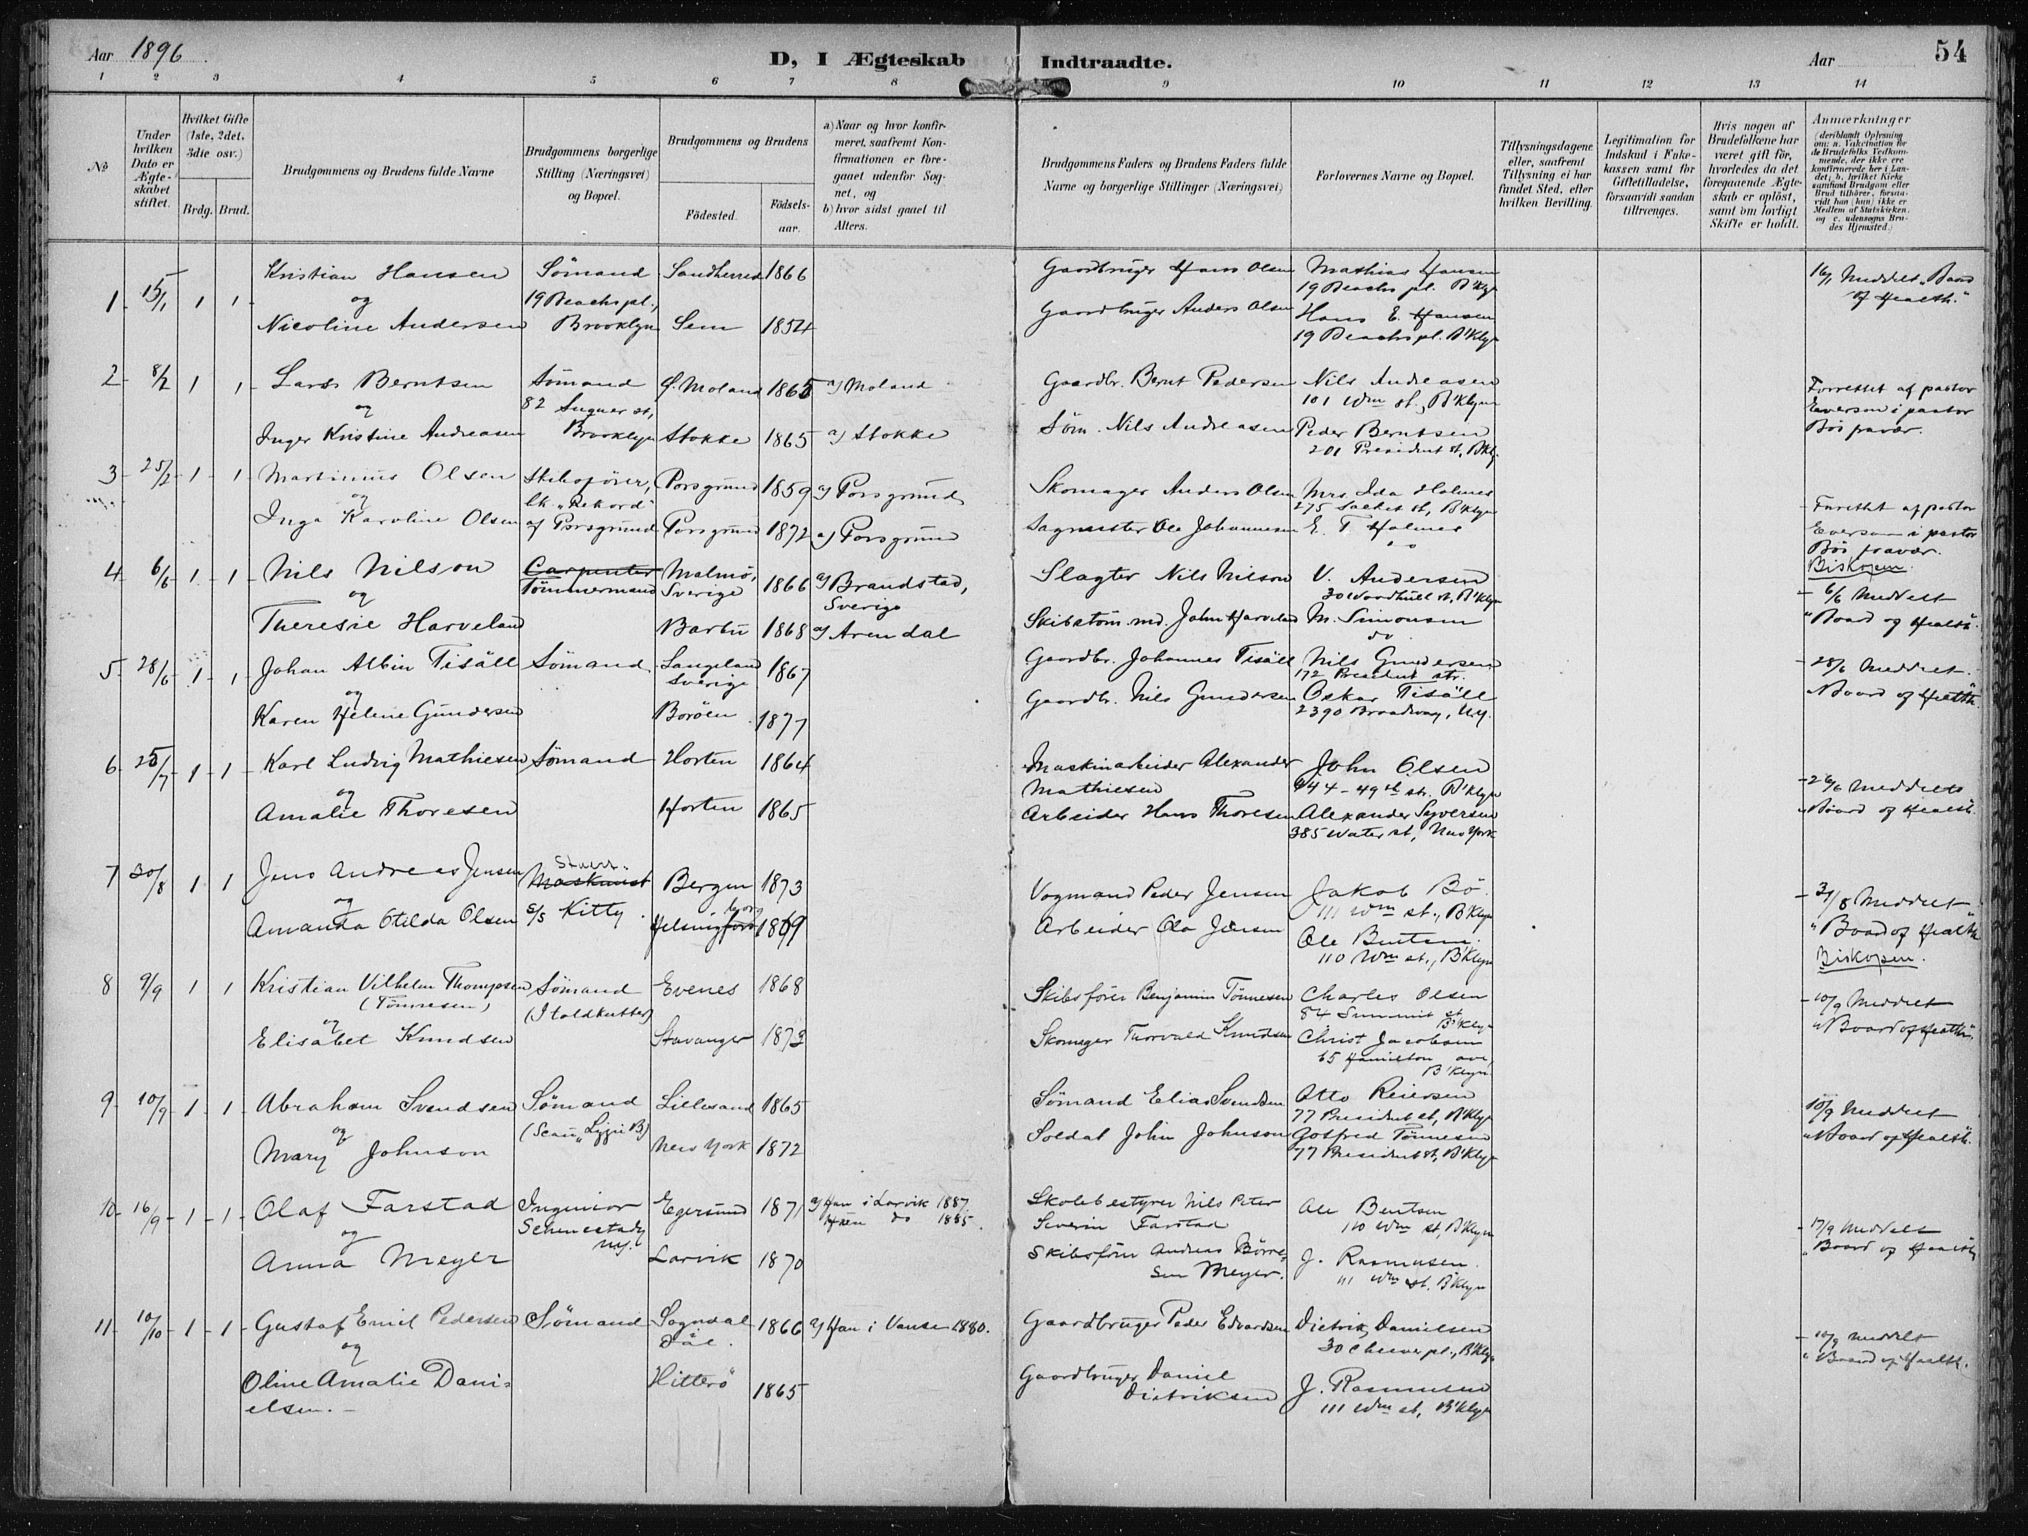 Aar 1896.
D, I Ægteskab Indtraadte.
Aar
54
1 2 3 4 5 6 7 8 9 10 11 12 13 14
No
Under hvilken Dato er Ægteskabet stiftet.
Hvilket Gifte (1ste, 2det, 3die osv.)
Brdg. Brud.
Brudgommens og Brudens fulde Navne
Brudgommens borgerlige Stilling (Næringsvei) og Bopæl.
Brudgommens og Brudens
Fødested.
Fødselsaar.
a) Naar og hvor konfirmeret, saafremt Konfirmationen er foregaaet udenfor Sognet, og
b) hvor sidst gaaet til Alters.
Brudgommens Faders og Brudens Faders fulde Navne og borgerlige Stillinger (Næringsvei)
Forlovernes Navne og Bopæl.
Tillysningsdagene eller, saafremt Tillysning ei har fundet Sted, efter hvilken Bevilling.
Legitimation for Indskud i Enkekassen samt for Giftetilladelse, forsaavidt saadan tiltrænges.
Hvis nogen af Brudefolkene har været gift før, hvorledes da det foregaaende Ægteskab er opløst, samt om lovligt Skifte er holdt.
Anmærkninger
(deriblandt Oplysning om: a. Vakcination for de Brudefolks Vedkommende, der ikke ere konfirmerede her i Landet; b. hvilket Kirkesamfund Brudgom eller Brud tilhører, forsaavidt han (hun) ikke er Medlem af Statskirken, og c. udensogns Brudes Hjemsted.)
1 15/1 1 1 Kristian Hansen Sømand Sandherred 1866 Gaardbruger Hans Olsen Mathias Hansen 16/1 Meddelt "Board
og 19 Beachs pl., 19 Beachs pl. B'Klyn of Health."
Nicoline Andersen Brooklyn Sem 1854 Gaardbruger Anders Olsen Hans E. Hansen
19 Beachs pl. B'Klyn
2 8/2 1 1 Lars Berntsen Sømand Ø. Moland 1865 a) Moland Gaardbr. Bernt Pedersen Nils Andreasen Forrettet af pastor
og 82 st, 101 Wm st., B'Klyn Everson i pastor
Inger Kristine Andreasen Brooklyn Stokke 1865 a) Stokke Søm. Nils Andreasen Peder Berntsen Bøs fravær.
201 President st, B'Kly.
3 25/2 1 1 Martinius Olsen Skibsfører, Porsgrund 1859 a) Porsgrund Skomager Anders Olsen Mrs Ida Holmes Forrettet af pastor
og bk "Rekord" 275 st, B'Klyn Everson i pastor
Inga Karoline Olsen af Porsgrund Porsgrund 1872 a) Porsgrund Sagmester Ole Johannesen E. T. Holmes Bøs fravær.
Biskopen.
4 6/6 1 1 Nils Nilson Carpenter Malmø, 1866 a) Brandstad, Slagter Nils Nilson V. Andersen 6/6 Meddelt
og Tømmermand Sverige Sverige 30 Woodhull st, B'Klyn "Board of Health".
Theresie Harveland Barbu 1868 a) Arendal Skibstøm. md. John Harveland M. Simonsen
do
5 28/6 1 1 Johan Albin Tisäll Sømand Langeland 1867 Gaardbr. Johannes Tisäll Nils Gundersen 28/6 Meddelt
og Sverige 172 President str. "Board of Health".
Karen Helene Gundersen Borøen 1877 Gaardbr. Nils Gundersen Oskar Tisäll
2390 Broadway, N.Y.
6 25/7 1 1 Karl Ludvig Mathiesen Sømand Horten 1864 Maskinarbeider Alexander John Olsen 26/6 Meddelt
og Mathiesen 444 - 49th str. B'Klyn "Board of Health.
Amalie Thoresen Horten 1865 Arbeider Hans Thoresen Alexander Syversen
385 Water st, New York
7 30/8 1 1 Jens Andreas Jensen Maskinist Bergen 1873 Vogmand Peder Jensen Jakob Bø. 31/8 Meddelt
og s/s Kitty. 111 Wm st., B'Klyn "Board of Health"
Amanda Otilda Olsen Helsingborg 1869 Arbeider Ola Jensen Ole Bentsen Biskopen.
110 Wm st., B'Klyn
8 9/9 1 1 Kristian Vilhelm Thompsen Sømand Evenes 1868 Skibsfører Benjamin Tønnesen Charles Olsen 10/9 Meddelt
(Tønnesen) (Toldkutter) 84 Summit st B'Klyn "Board of Health".
og
Elisabet Knudsen Stavanger 1873 Skomager Thorvald Knudsen Christ Jacobsen
65 Hamilton ave, B'Klyn.
9 10/9 1 1 Abraham Svendsen Sømand Lillesand 1865 Sømand Elias Svendsen Otto Reiersen 10/9 Meddelt
og 77 President st, B'Klyn "Board of Health.
Mary Johnson New York 1872 Soldat John Johnson Gotfred Tønnesen
77 President st, B'Klyn
10 16/9 1 1 Olaf Farstad Ingeniør Egersund 1871 a) Han i Larvik 1887. Skolebestyrer Nils Peter Ole Bentsen 17/9 Meddelt
og Schenectady Hun do 1885. Severin Farstad 110 Wm st, B'Klyn "Board of Health
Anna Meyer N.Y. Larvik 1870 Skibsfører Andreas Børresen Meyer. J. Rasmusen.
111 Wm st. B'Klyn
11 10/10 1 1 Gustaf Emil Pedersen Sømand Sogndal 1866 a) Han i Vanse 1880. Gaardbruger Peder Edvardsen Dietrik Danielsen 10/9 Meddelt
og 30 Cheever pl., B'Klyn "Board of Health.
Oline Amalie Danielsen. Hitterø 1865 Gaardbruger Daniel Dietriksen J. Rasmusen
111 Wm st, B'Klyn